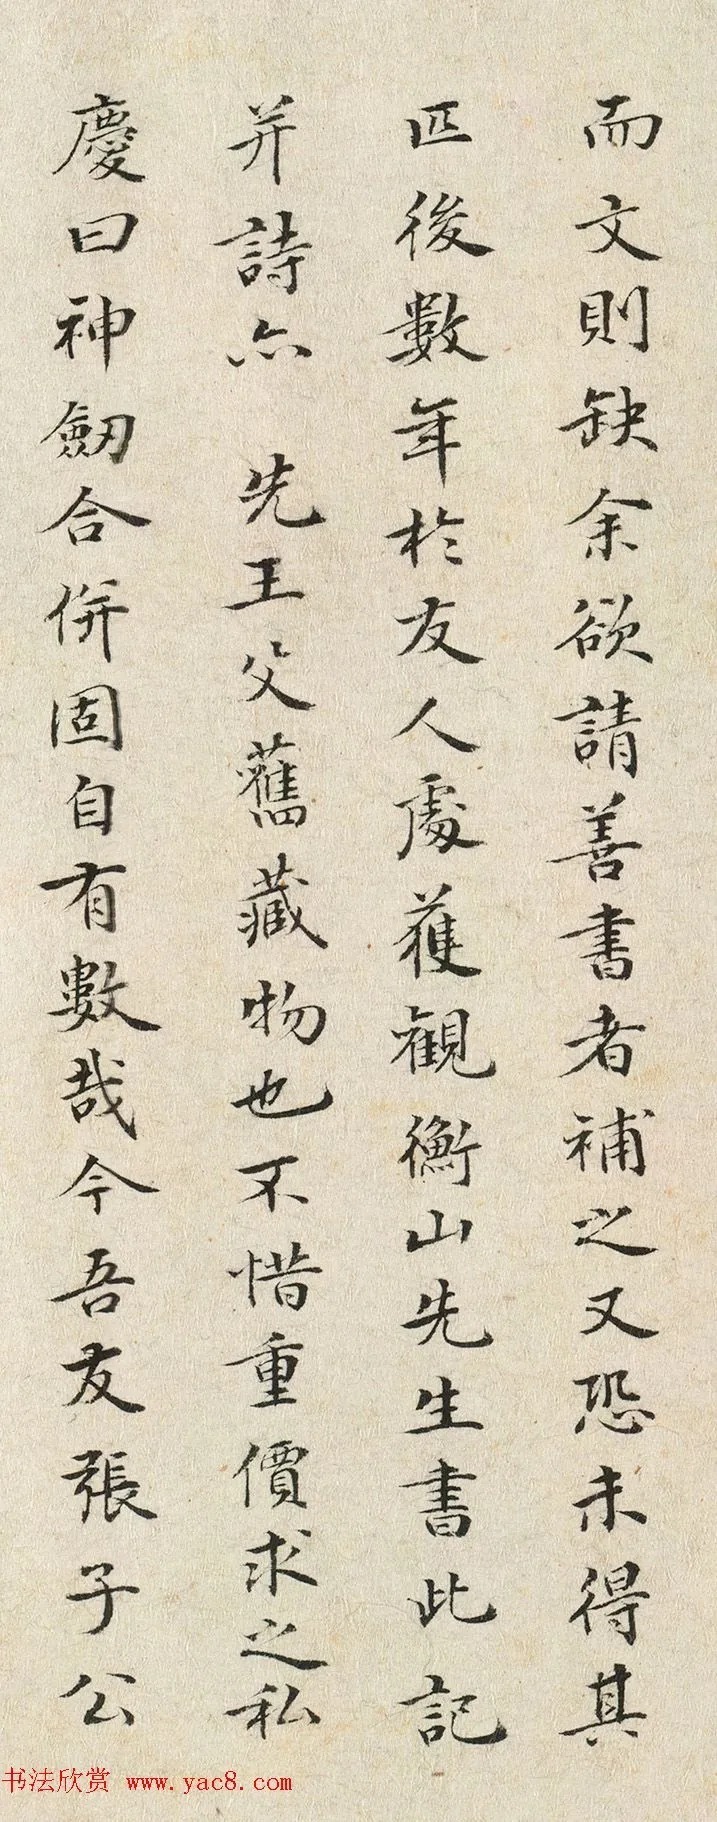 而文則缺余欲請善書者補之又恐未得其
匹後數年於友人處獲觀衡山先生書此記
并詩亦 先王父舊藏物也不惜重價求之私
慶曰神劒合併固自有數哉今吾友張子公
书法欣赏 www.yac8.com